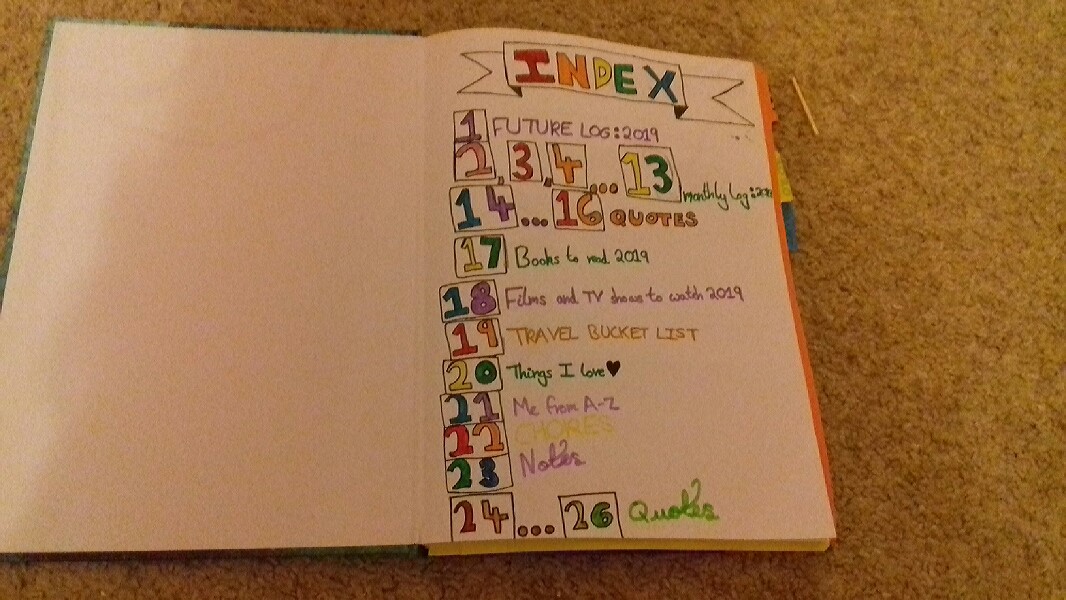 INDEX
1 FUTURE LOG:2019
2,3,4...13 monthly log:
14...16 QUOTES
17 Books to read 2019
18 Films and TV shows to watch 2019
19 TRAVEL BUCKET LIST
20 Things I love♥
21 Me from A-Z
22 CHORES
23 Notes
24...26 Quotes